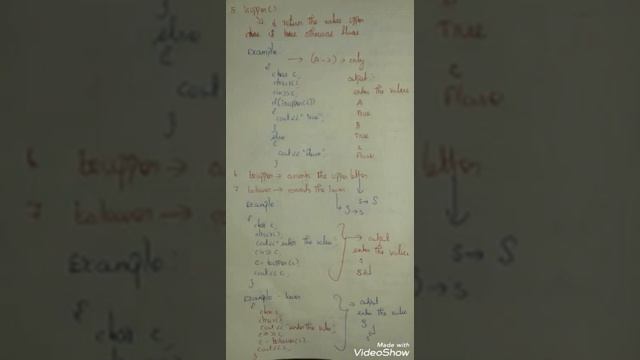 5. isupper()
It is return the value upper
case is true otherwise false
Example:
→ (A-Z) → only
{
char c;
clrscr();
cin>>c;
if(isupper(c))
{
cout<<"true";
}
else
{
cout<<"false";
}
output:
enter the value
A
True
B
True
c
Flase
6 toupper → converts the upper letter
7 tolower → converts the lower
s → S
S → s
Example:
{
char c;
clrscr();
cout<<"enter the value";
cin>>c;
c = toupper(c);
cout<<c;
}
→ output
enter the value
s
Example: lower
{
char c;
clrscr();
cout<<"enter the value";
cin>>c;
c = tolower(c);
cout<<c;
}
→ output
enter the value
S
s
Made with
VideoShow